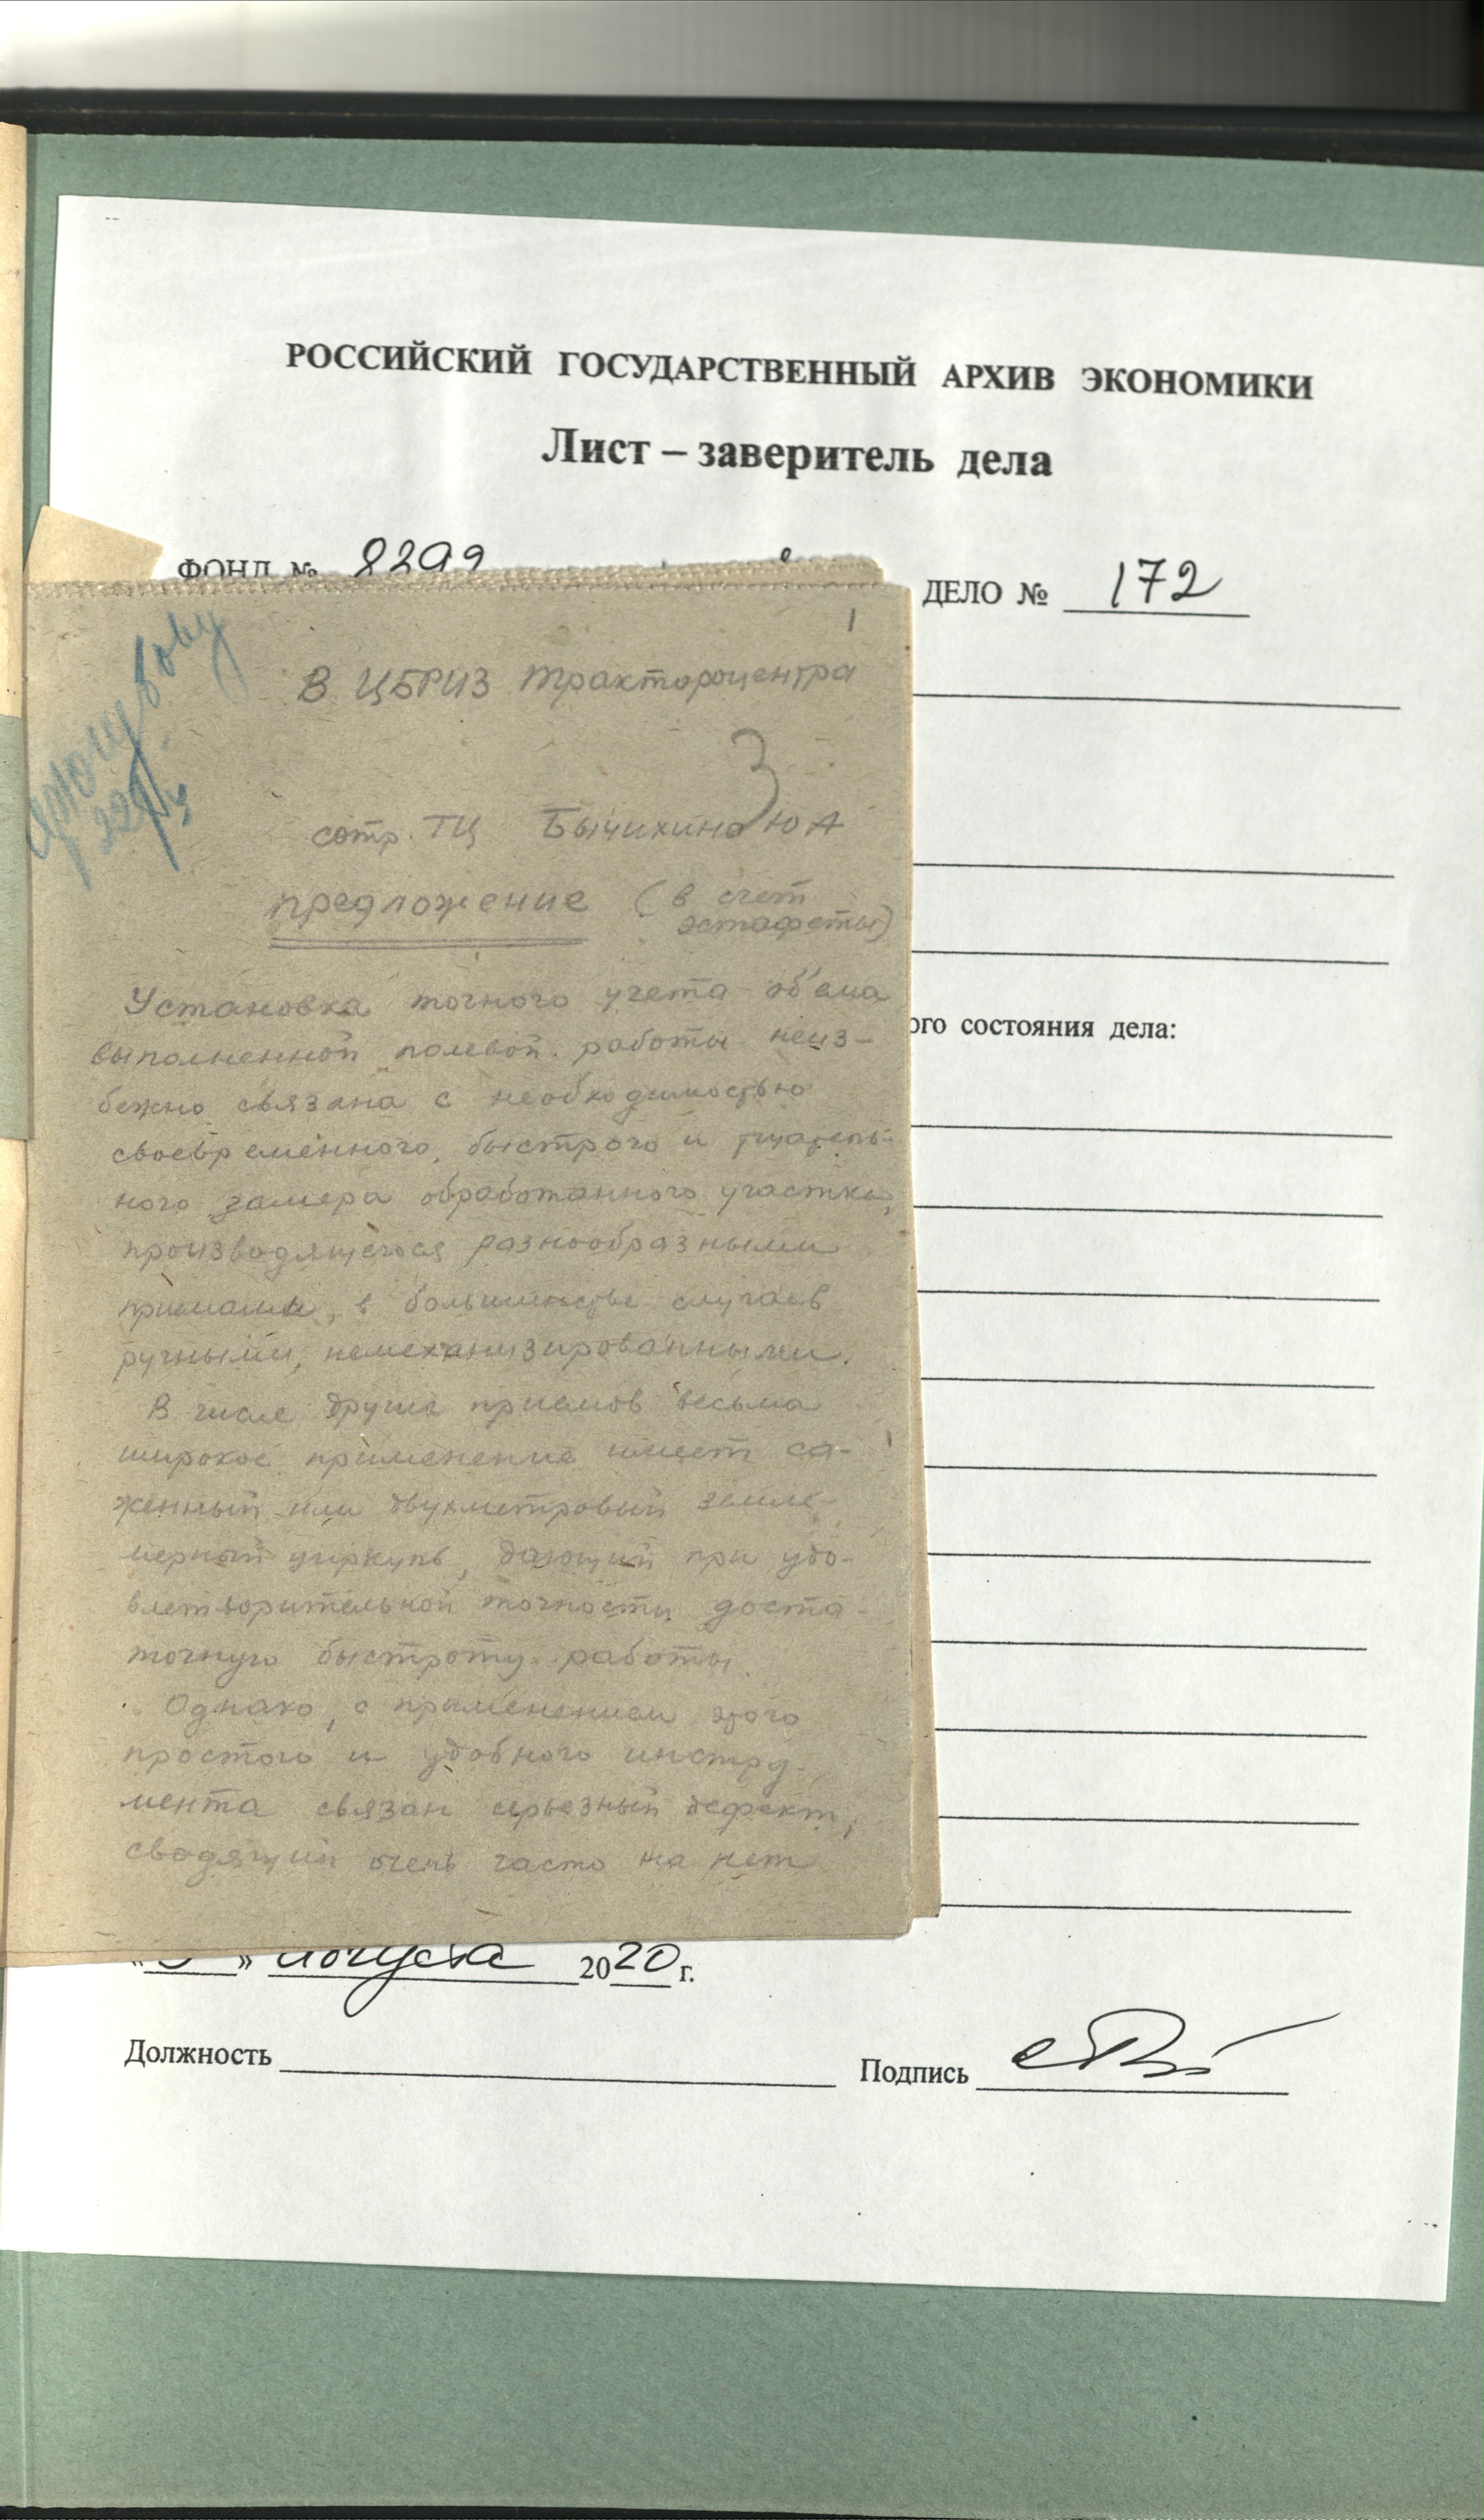 РОССИЙСКИЙ ГОСУДАРСТВЕННЫЙ АРХИВ ЭКОНОМИКИ
Лист – заверитель дела
ФОНД № 8299
ДЕЛО № 172
1
В ЦБРИЗ Трактороцентра
3
сотр. ТЦ Бычихина Ю А
предложение (в счет
эстафеты)
Установка точного учета об'ема
выполненной полевой работы неиз-
бежно связана с необходимостью
своевременного, быстрого и тщатель-
ного замера обработанного участка,
производящегося разнообразными
приемами, в большинстве случаев
ручными, немеханизированными.
В числе других приемов весьма
широкое применение имеет са-
женный или двухметровый земле-
мерный циркуль, дающий при удо-
влетворительной точности доста-
точную быстроту работы.
Однако, с применением этого
простого и удобного инстру-
мента связан серьезный дефект,
сводящий очень часто на нет
ого состояния дела:
» августа 2020 г.
Должность
Подпись